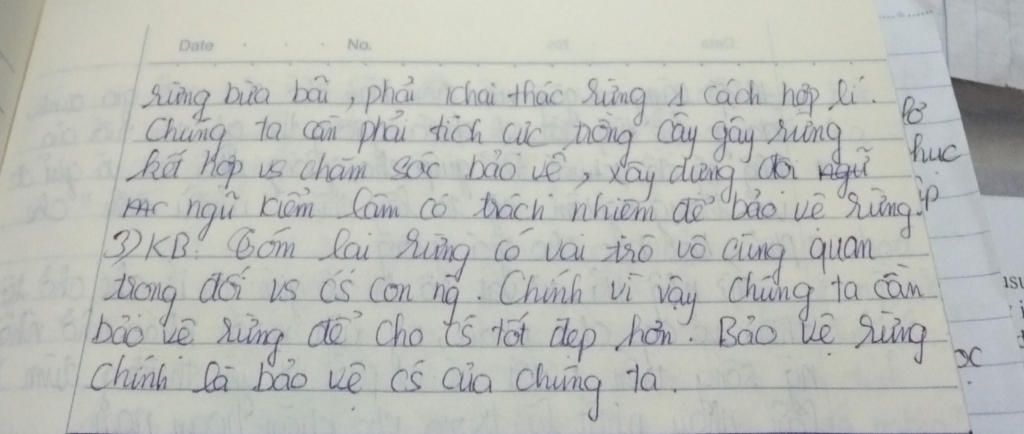 Date No.
rừng bừa bãi, phải khai thác rừng 1 cách hợp lí.
Chúng ta cần phải tích cực trồng cây gây rừng
kết hợp vs chăm sóc bảo vệ, xây dựng đội ngũ
ngũ kiểm lâm có trách nhiệm để bảo vệ rừng.
3) KB: Tóm lại rừng có vai trò vô cùng quan
trọng đối vs cs con ng. Chính vì vậy chúng ta cần
bảo vệ rừng để cho cs tốt đẹp hơn. Bảo vệ rừng
chính là bảo vệ cs của chúng ta.